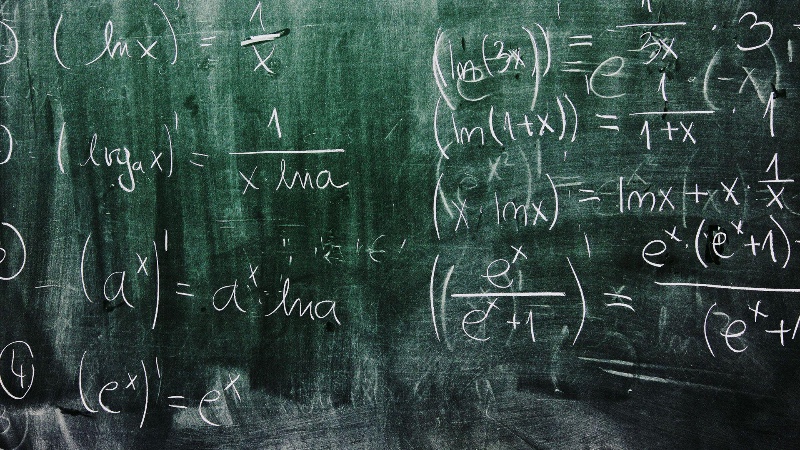 (ln x)' = 1/x
(log_a x)' = 1/(x · ln a)
(a^x)' = a^x · ln a
4 (e^x)' = e^x
(ln(3x))' = 1/3x · 3
(ln(1+x))' = 1/(1+x) · 1
(x · ln x)' = ln x + x · 1/x
(e^x/(e^x+1))' = e^x · (e^x+1) - / (e^x+1